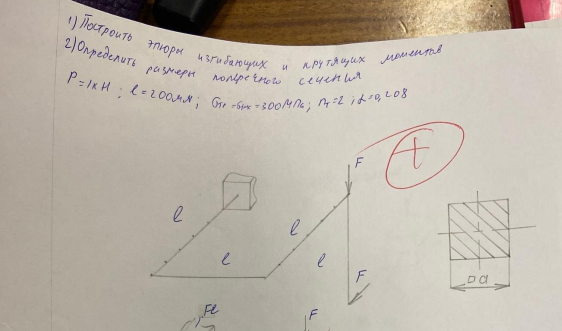 1) Построить эпюры изгибающих и крутящих моментов
2) Определить размеры поперечного сечения
P = 1кН ; l = 200мм; = 300МПа; nт = 2 ; α = 0,208
F
+
l
l
l
l
F
□ a
Fl
F